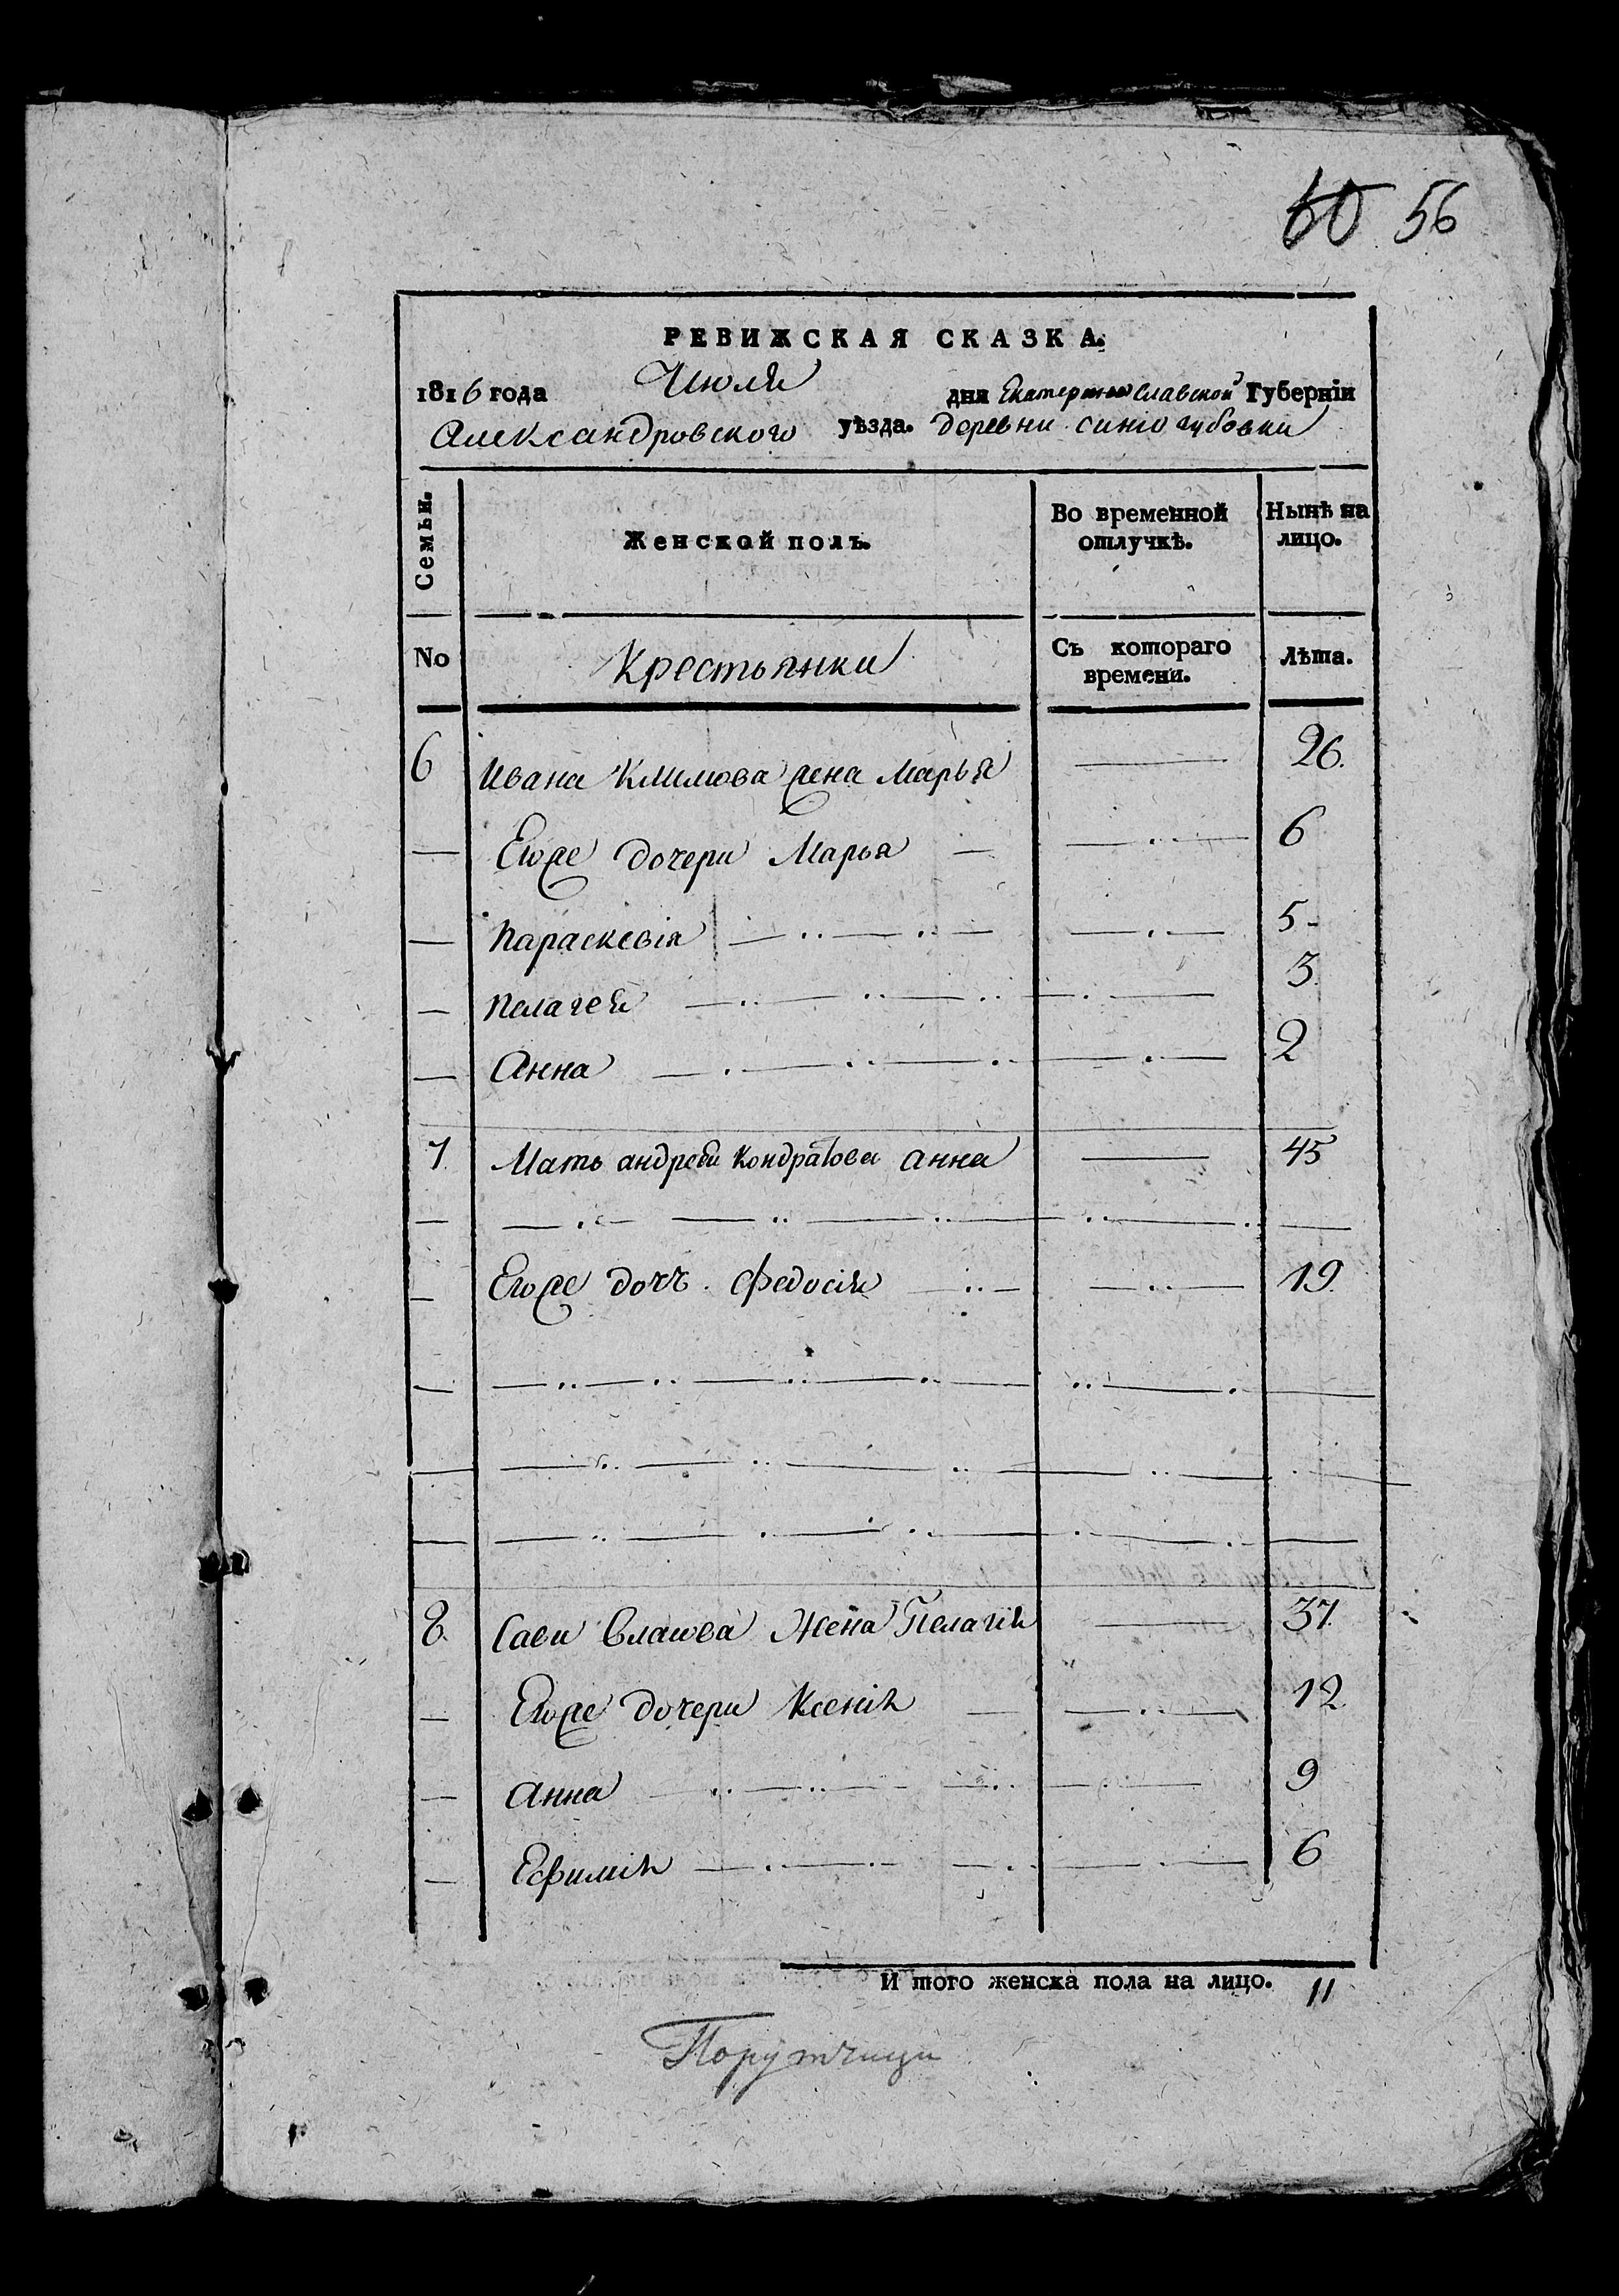 60 56
РЕВИЖСКАЯ СКАЗКА.
1816 года Июля дня Екатеринославской Губерніи
Александровского уѣзда. деревни синюгубовки
Семьи. Женской полъ. Во временной отлучкѣ. Нынѣ на лицо.
No Крестьянки Съ котораго времени. Лѣта.
6 Ивана Климова жена Марья 26.
Егоже дочери Марья 6
Параскевія 5
Пелагея 3
Анна 2
7. Мать андрея Кондратова анна 45
Егоже дочь Федосія 19.
8. Савы Власова Жена Пелагия 37.
Егоже дочери Ксенія 12
Анна 9
Ефимія 6
И того женска пола на лицо. 11
Порутчици